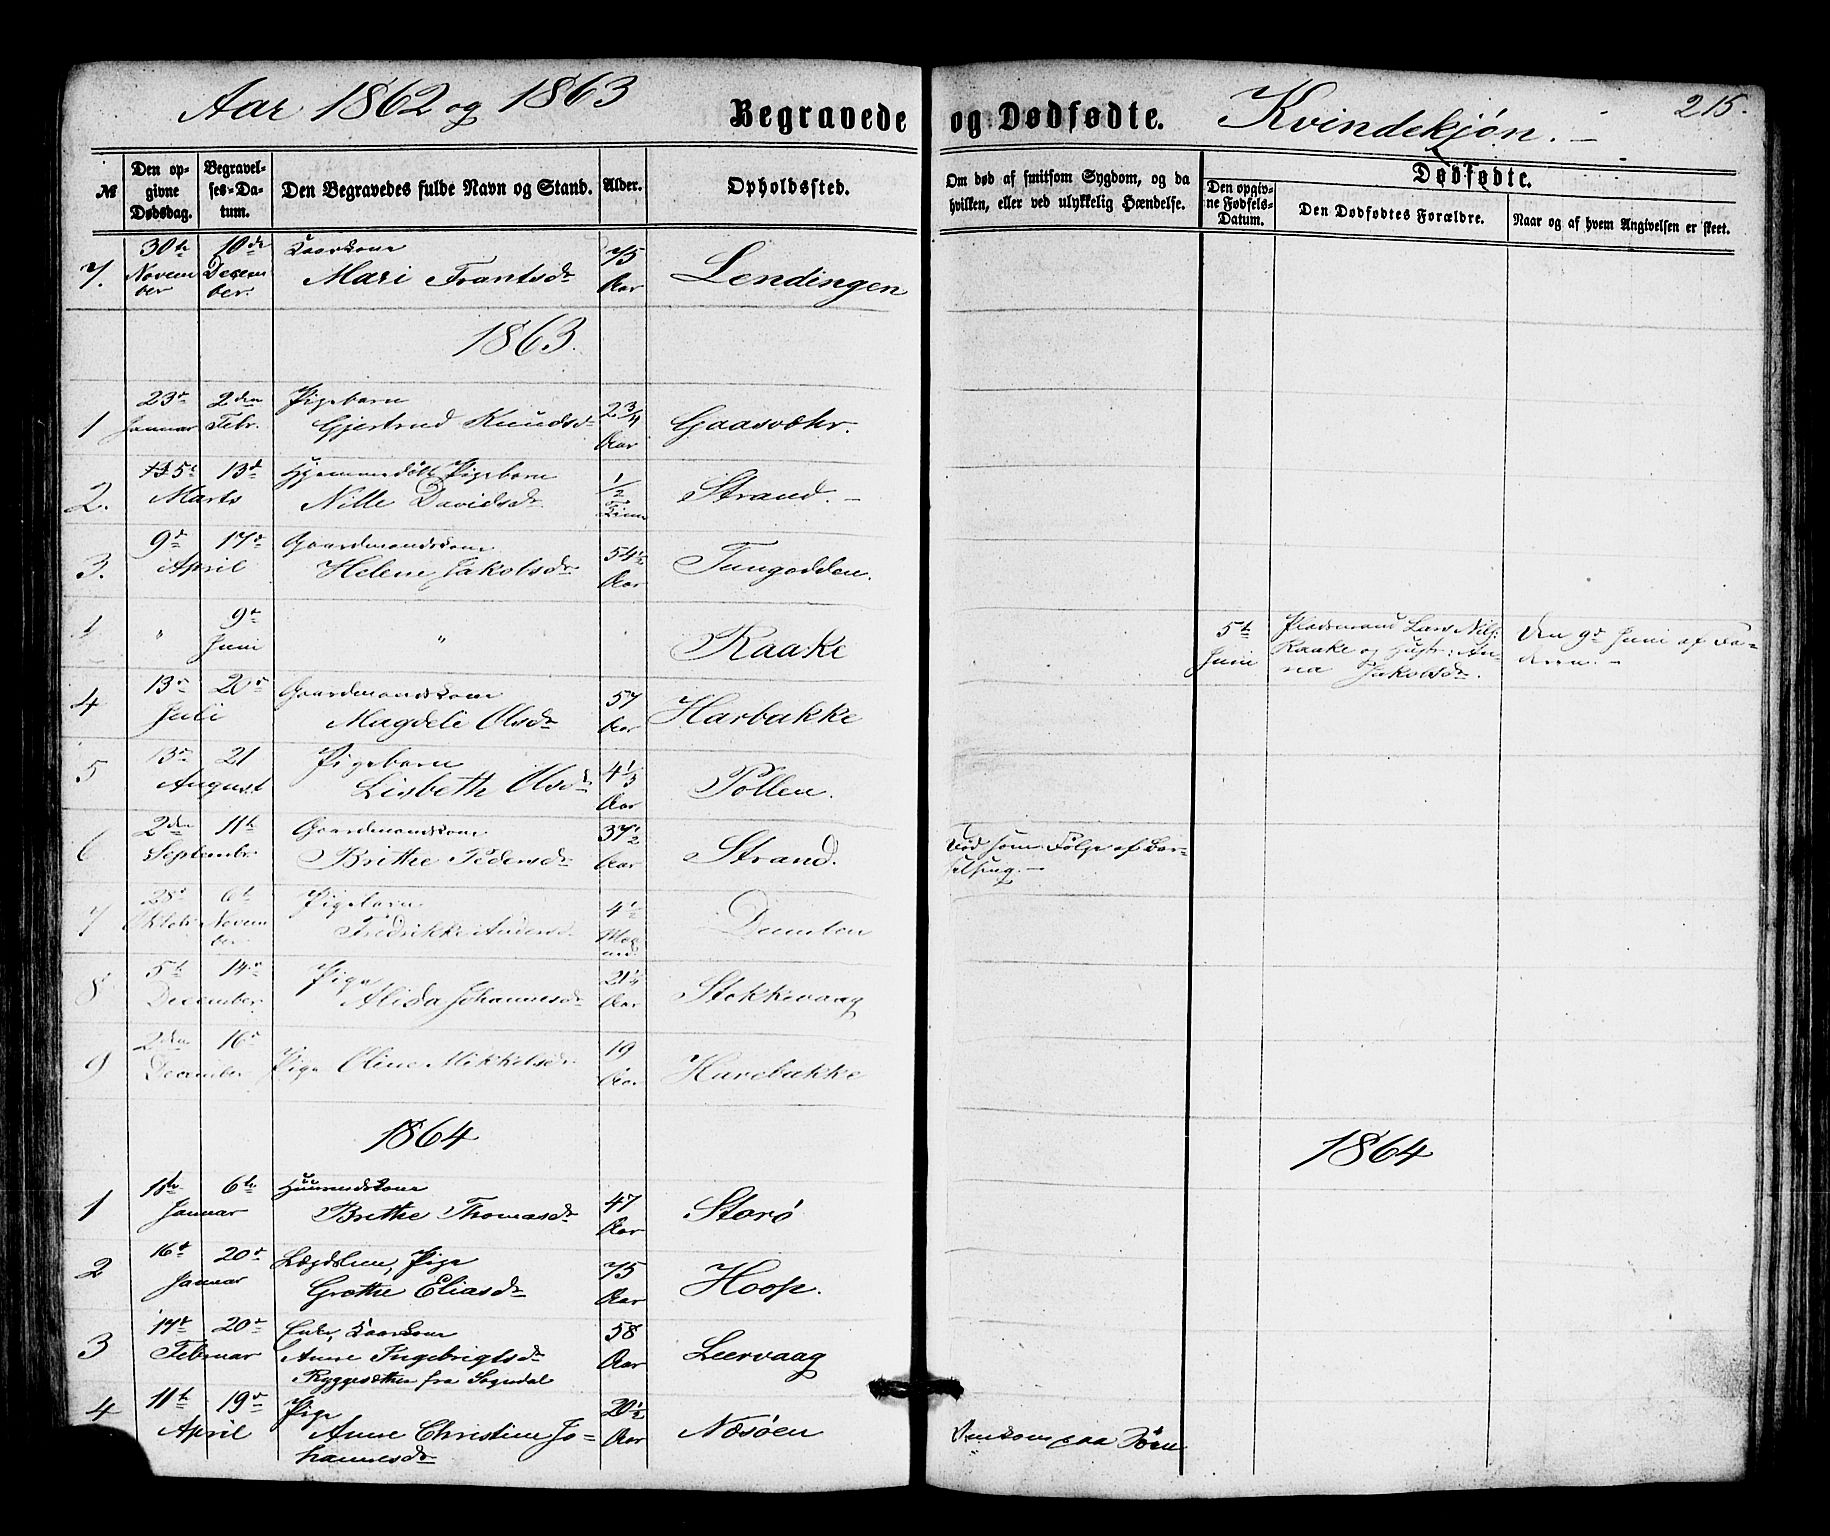 Aar 1862 og 1863
Begravede og Dødfødte. Kvindekjøn. 215.
№
Den opgivne Dødsdag.
Begravelses-Datum.
Den Begravedes fulde Navn og Stand.
Alder.
Opholdssted.
Om død af smitsom Sygdom, og da
hvilken, eller ved ulykkelig Hændelse.
Dødfødte.
Den opgivne Fødsels-Datum.
Den Dødfødtes Forældre.
Naar og af hvem Angivelsen er skeet.
7. 30te November 10de December. Kaarkone
Mari Frantsdr 75 Aar Lendingen
1863.
1 23de Januar 2den Febr. Pigebarn
Gjertrud Knudsdr 2 3/4 Aar Gaasvær.
2. 5te Marts 13de Hjemmedøbt Pigebarn
Nille Davidsdr 1/2 Time Strand.
3. 9de April 17de Gaardmandskone
Helene Jakobsdr 54 1/2 Aar Tungodden.
" 9de Juni " Raake
5te Juni Pladsmand Lars Nils:
Raake og Hustr: An-
na Jakobsdr.
Den 9de Juni af Fa-
deren.
4 13de Juli 20de Gaardmandskone
Magdeli Olsdr 57 Aar Harbakke
5 13de August 21 Pigebarn
Lisbeth Olsdr 4 1/3 Aar Pollen.
6 2den September 11te Gaardmandskone
Brithe Pedersdr 37 1/2 Aar Strand.
Død som Følge af Bar-
selseng.
7 28de Oktobr 6te November Pigebarn
Fredrikke Andersdr 4 1/2 Maaned
8 5te December 14de Pige
Alida Johannesdr 21 1/4 Aar Stokkevaag
9 2den December 16de Pige Oline Mikkelsdr 19 Aar Harebakke
1864
1864
1 1ste Januar 6te Huusmandskone
Brithe Thomasdr 47 Aar Storø
2 16de Januar 20de Lægdslem, Pige
Grethe Eliasdr 75 Aar Hoop.
3 17de Februar 20de Enke, Kaarkone
Anne Ingebrigtsdr
Ryggesæther fra Sogndal 58 Aar Leervaag
4 11te April 19de Pige
Anne Christine Jo-
hannesdr 20 1/2 Aar Næsøen
Omkom paa Søen